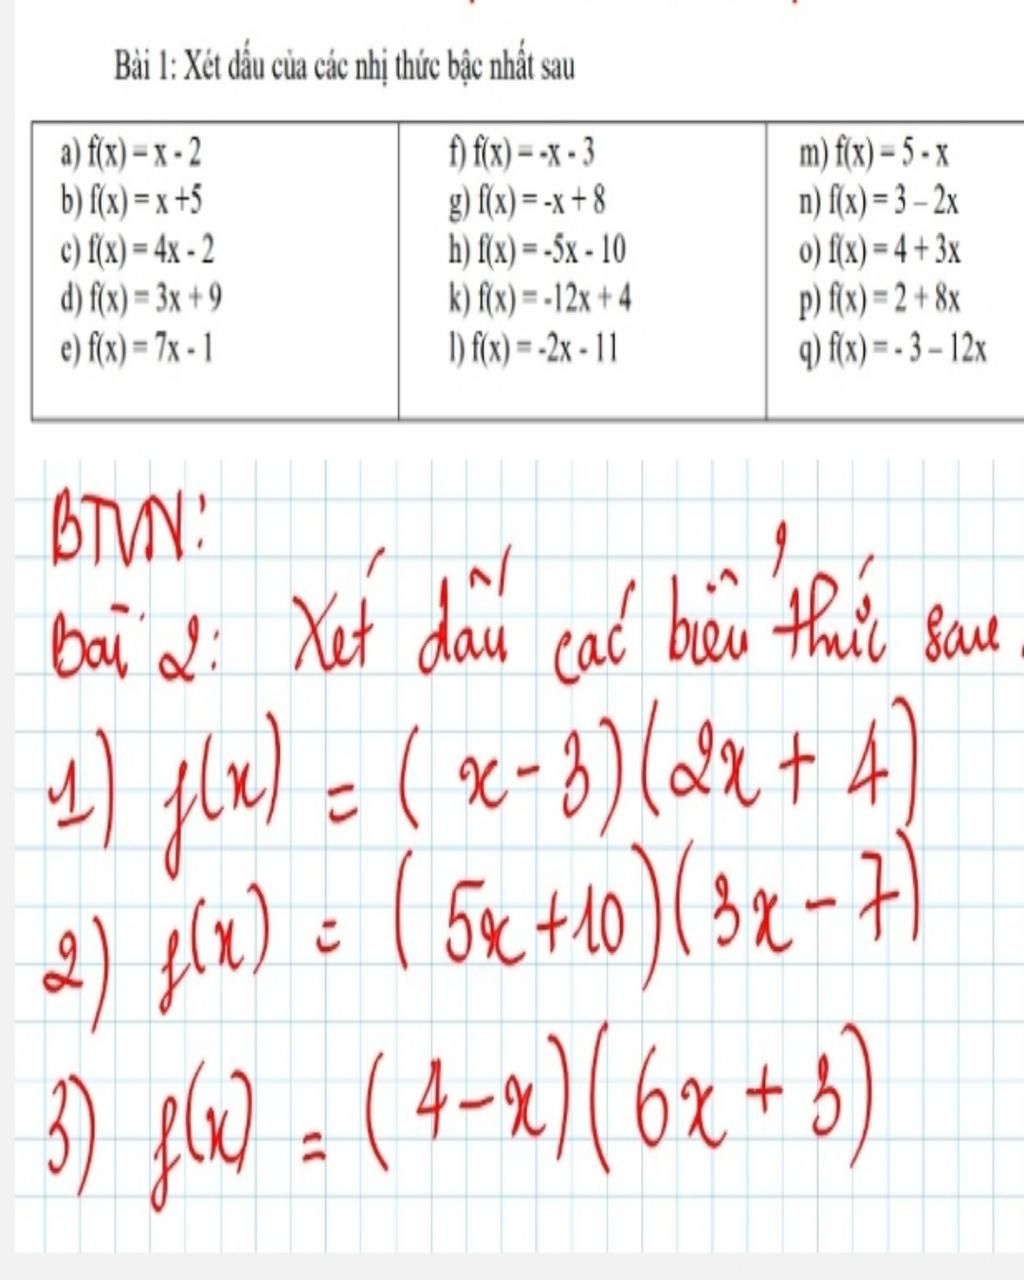 Bài 1: Xét dấu của các nhị thức bậc nhất sau
a) f(x) = x - 2
b) f(x) = x +5
c) f(x) = 4x - 2
d) f(x) = 3x + 9
e) f(x) = 7x - 1
f) f(x) = -x - 3
g) f(x) = -x + 8
h) f(x) = -5x - 10
k) f(x) = -12x + 4
l) f(x) = -2x - 11
m) f(x) = 5 - x
n) f(x) = 3 – 2x
o) f(x) = 4 + 3x
p) f(x) = 2 + 8x
q) f(x) = - 3 – 12x
BTVN:
Bài 2: Xét dấu các biểu thức sau.
1) f(x) = (x-3)(2x+4)
2) f(x) = (5x+10)(3x-7)
3) f(x) = (4-x)(6x+3)